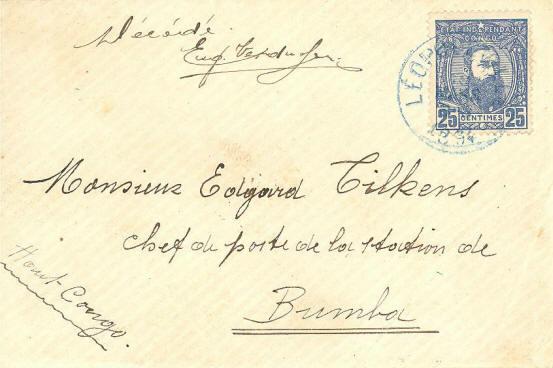 Décédé.
Eug.
ETAT INDÉPENDANT
CONGO
25 CENTIMES 25
LÉOPO
Monsieur Edgard Tilkens
chef de poste de la station de
Bumba
Haut-Congo.